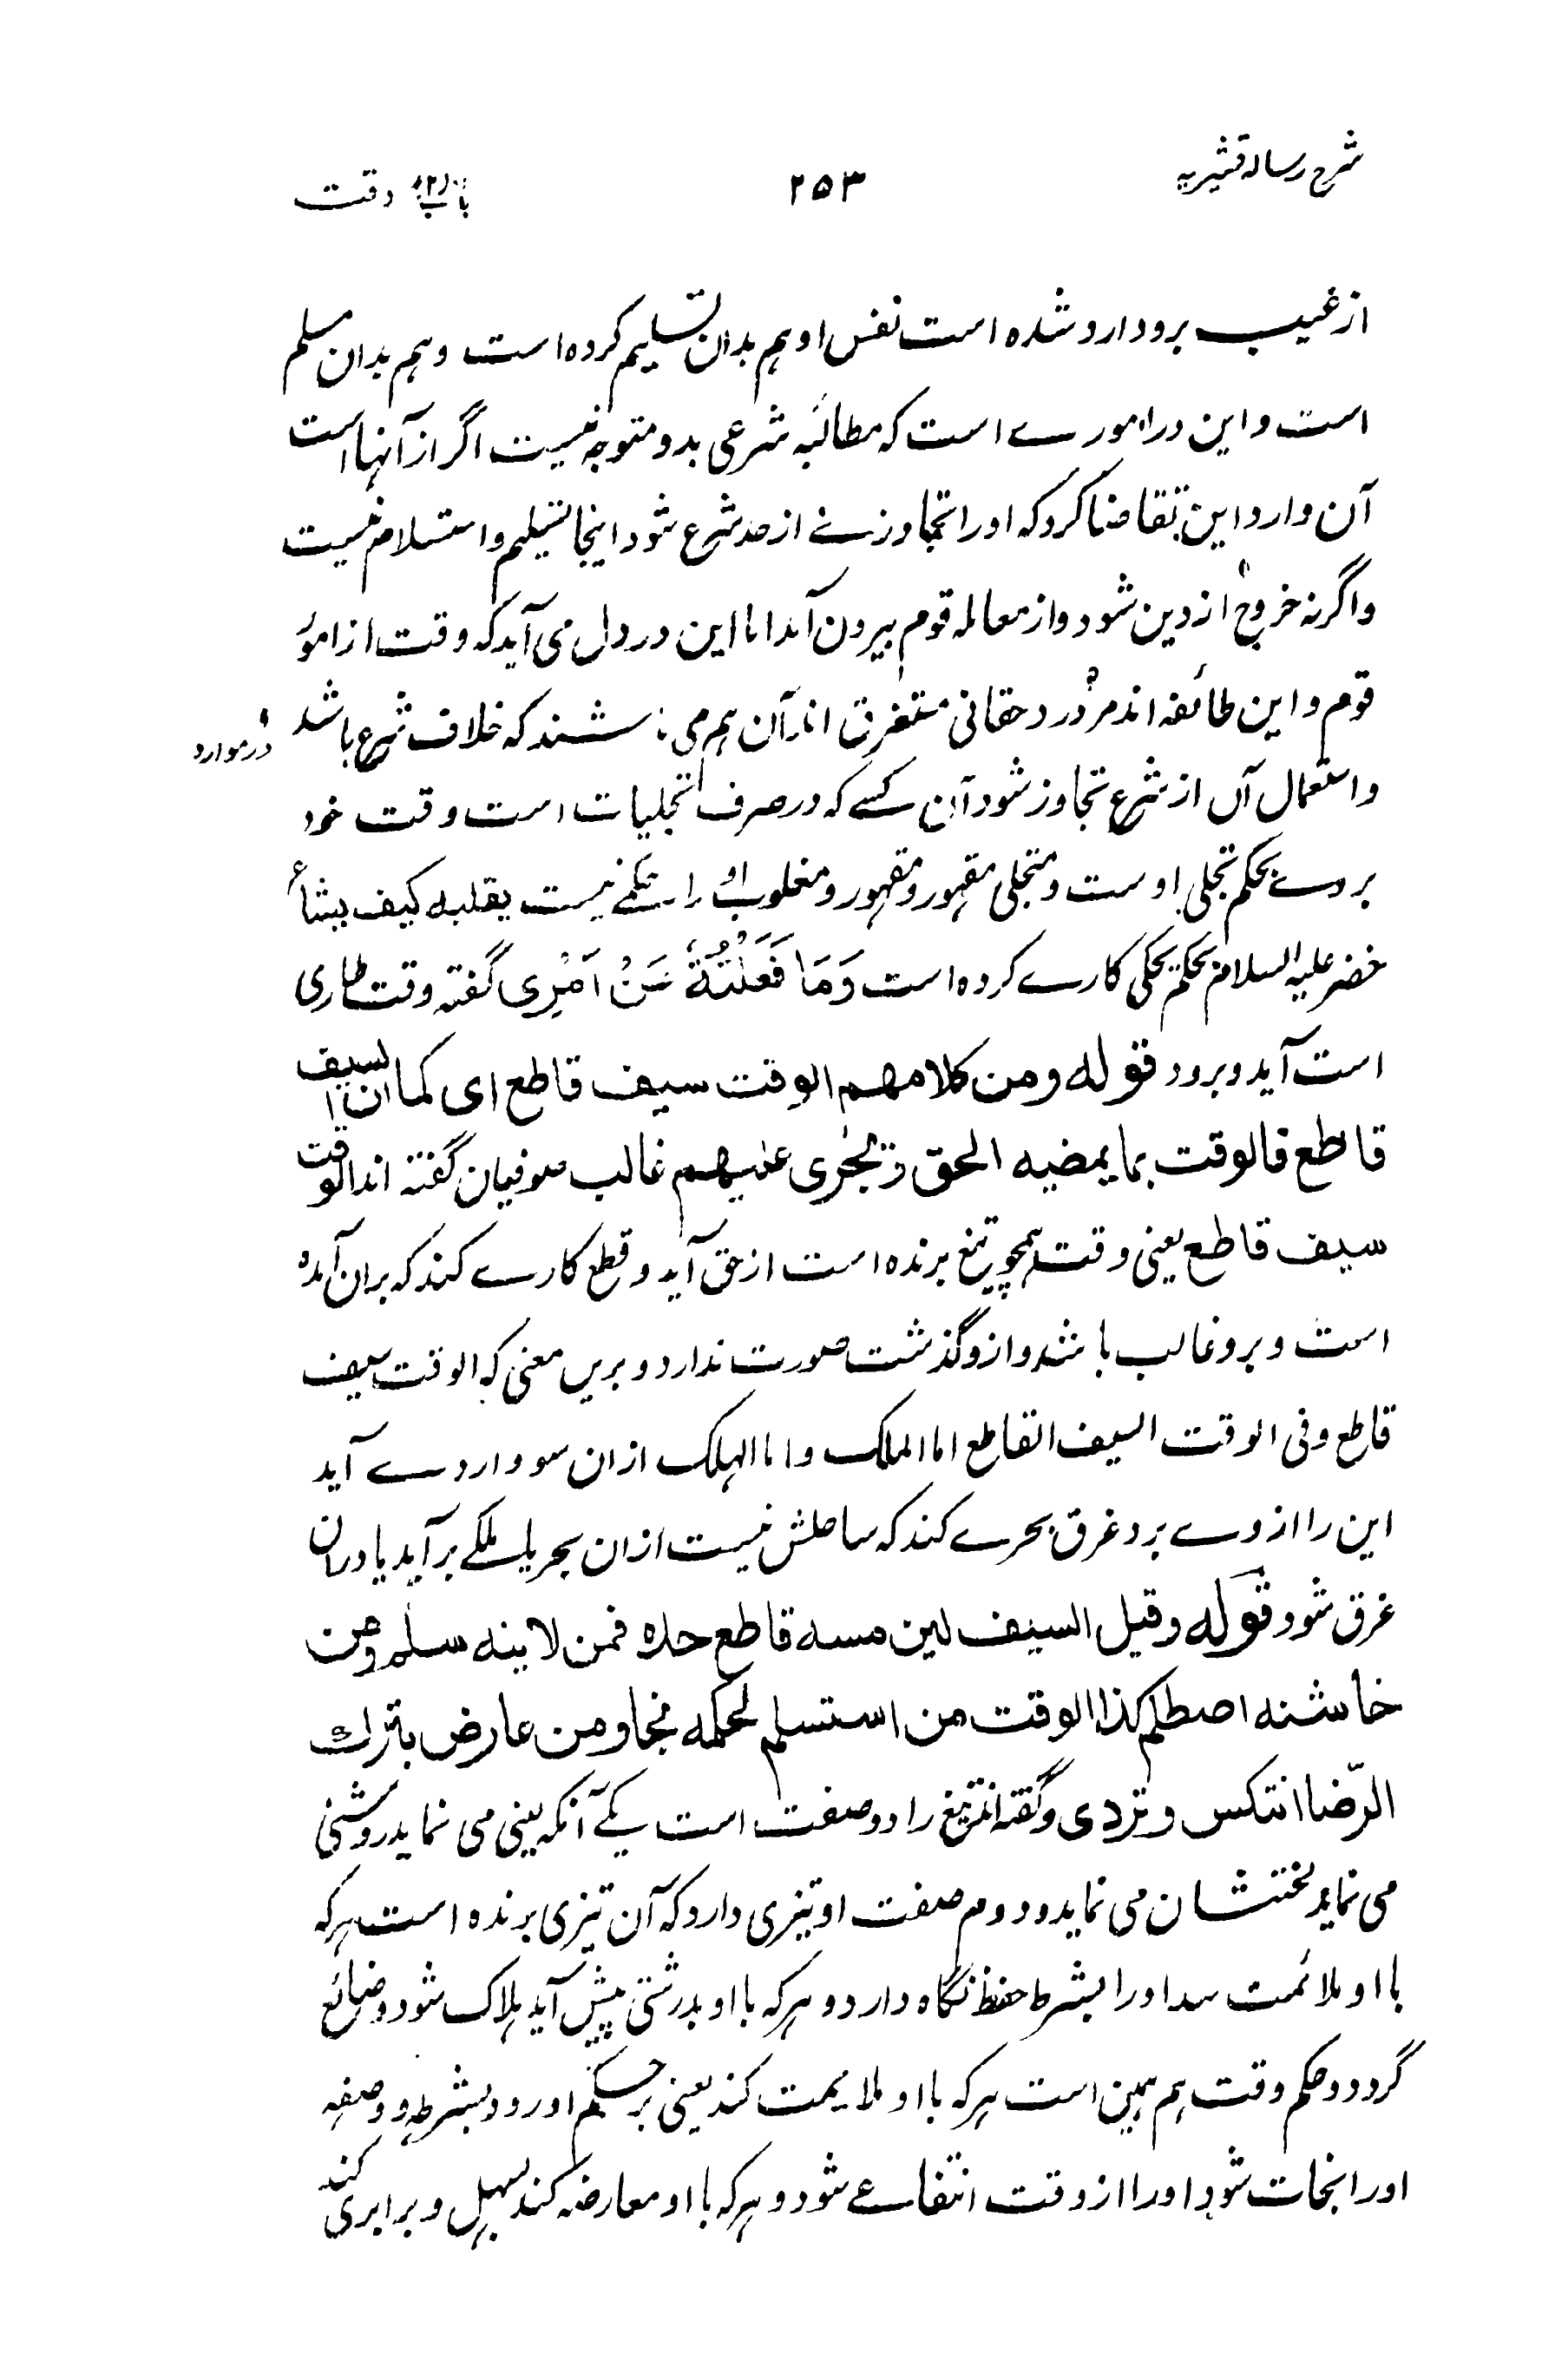 شرح رساله قشیریه ۲۵۳ باب (۲) وقت
از غیب برو وارد شده است نفس او هم بدان تسلیم کرده است و هم بدان مسلم
است و این در امورے است که مطالبه شرعی بدو متوجه نیست اگر از آنها است
آن وارد این تقاضا کرد که او را تجاوزے از حد شرع شود اینجا تسلیم و استسلام نیست
واگرنه خروج از دین شود و از معامله قوم بیرون آمد اما این در دل می آید که وقت از امور
قوم و این طائفه اند مرد در حقانی مستغرق اند آن هم می باشند که خلاف شرع باشد
در موارد
و استعمال آں از شرع تجاوز شود آن کسے که در صرف تجلیات است وقت خود
بر وے بحکم تجلی اوست و متجلی مقهور و مقهور و مغلوب او را تمکنے نیست یقلبه کیف یشاء
خضر علیه السلام بحکم تحکمی کارے کرده است وَمَا فَعَلْتُهٗ عَنْ اَمْرِی گفته وقت طاری
است آید و برود قوله ومن کلامهم الوقت سیف قاطع ای کما ان السیف
قاطع فالوقت بما یمضیه الحق و یجری علیهم غالب صوفیان گفته اند الوقت
سیف قاطع یعنی وقت همچو تیغ برنده است از حق آید و قطع کارے کند که بران آمده
است و برو غالب باشد و ازو گذشت صورت ندارد و بریں معنی که الوقت سیف
قاطع وفی الوقت السیف القاطع اما الملک واما الهلک ازان سو واردے آید
این را از وے برد غرق بحرے کند که ساحلش نیست ازان بحر یا ملکے برآید یا دران
غرق شود قوله وقیل السیف لین مسه قاطع حده فمن لاینه سلم ومن
خاشنه اصطلم کذا الوقت من استسلم لحکمه نجا ومن عارض بترک
الرّضا انتکس و تردی و گفته اند تیغ را دو صفت است یکے آنکه بینی می نماید روشنی
می نماید لختشان می نماید و دوم صفت او تیزی دارد که آن تیزی برنده است هرکه
با او ملائمت سد او را بشرط حفظ نگاه دارد و هرکه با او بدرشتی پیش آید هلاک شود و ضائع
گردد و حکم وقت هم همین است هرکه با او ملایمت کند یعنی بر حکم او رود بشرطه و وصفه
او را نجات شود او را از وقت انتفاعے شود و هرکه با او معارضه کند بهل و برابری کند